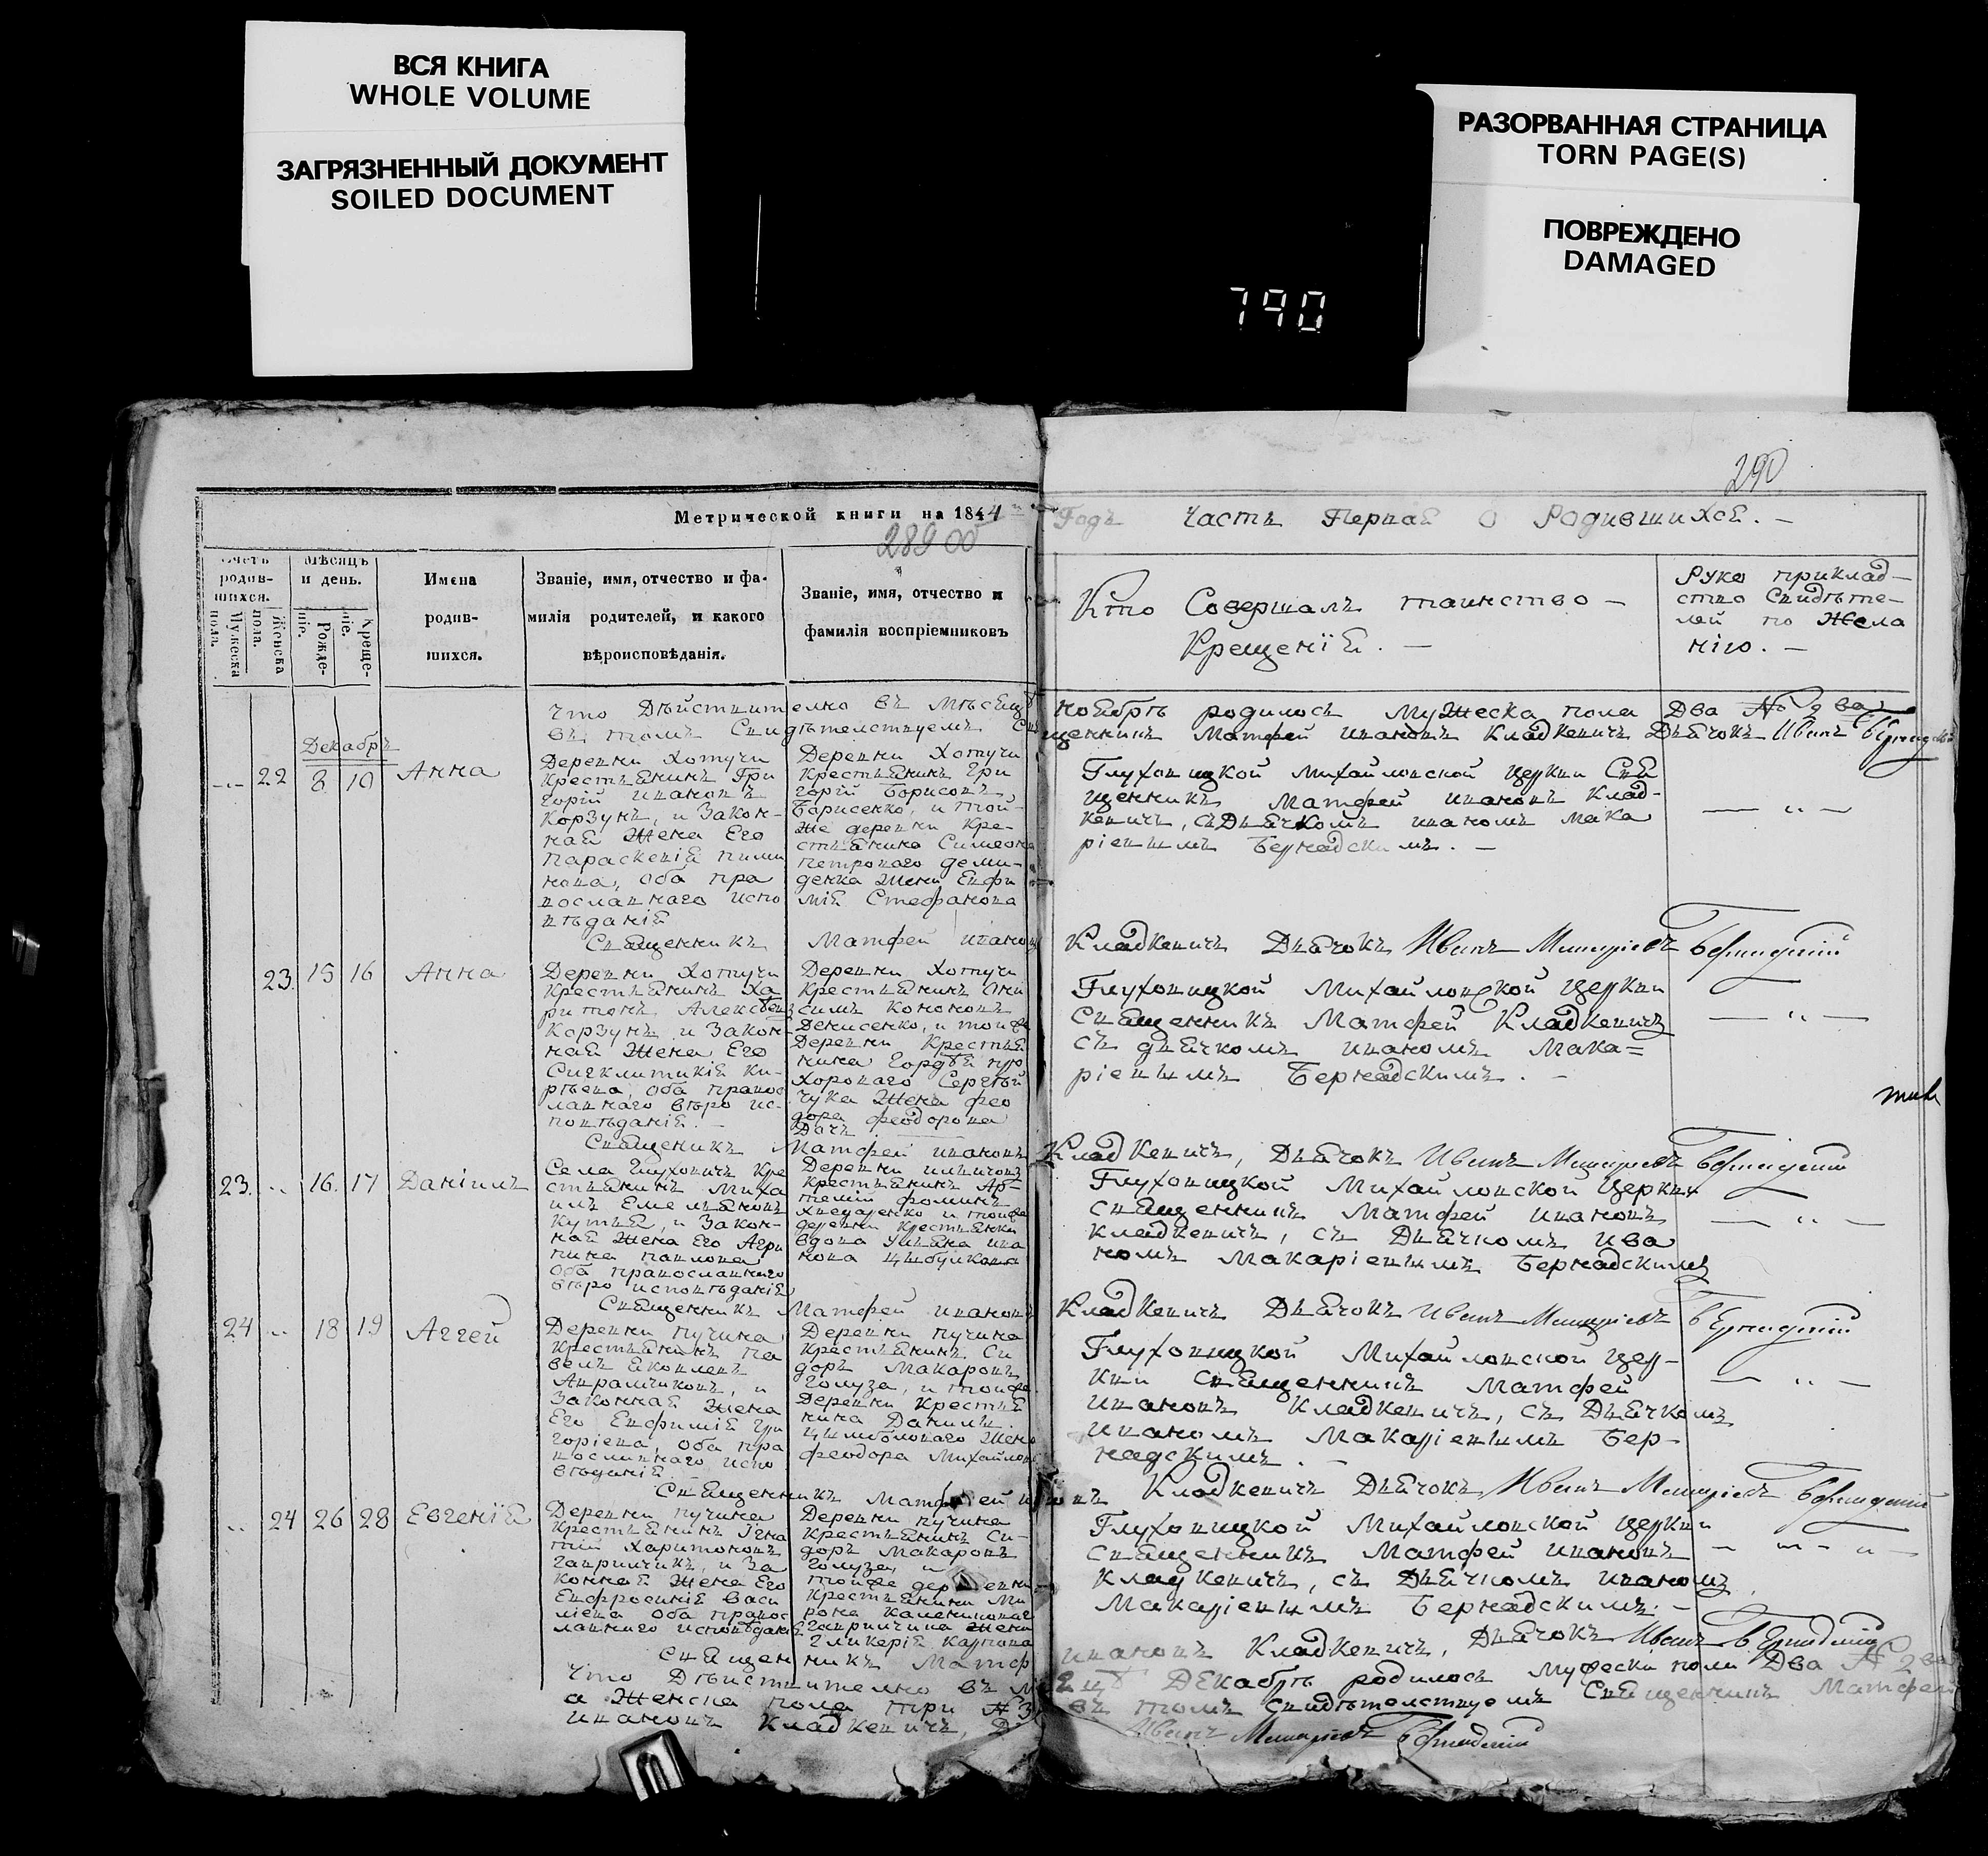 ВСЯ КНИГА
WHOLE VOLUME
ЗАГРЯЗНЕННЫЙ ДОКУМЕНТ
SOILED DOCUMENT
РАЗОРВАННАЯ СТРАНИЦА
TORN PAGE(S)
ПОВРЕЖДЕНО
DAMAGED
790
290
Метрической книги на 1844
Годъ Часть Первая о Родившихся. —
289 об
Счетъ родив-шихся.
Мужеска пола.
Женска пола.
Мѣсяцъ и день.
Рожде-ніе.
Креще-ніе.
Имена
родив-
шихся.
Званіе, имя, отчество и фа-
милія родителей, и какого
вѣроисповѣданія.
Званіе, имя, отчество и
фамилія воспріемниковъ
Кто Совершалъ таинство —
Крещенія. —
Руко приклад—
ство Свидѣте—
лей по Жела
нію. —
что Дѣйствительно въ Мѣсяцѣ ноябрѣ родилось Мужеска пола Два № 2 ва
въ томъ Свидѣтельствуемъ Священникъ Матфей Ивановъ Кладкевичъ Дьячокъ Иванъ
Декабрь
22 8 10 Анна
Деревни Хотучи
Крестьянинъ Гри
горій Ивановъ
Корзунъ, и Закон-
ная Жена Его
Параскевія
нова, Оба пра
вославнаго испо
вѣданія
Деревни Хотучи
Крестьянинъ Гри
горій Борисовъ
Борисенко, и той-
же деревни Кре-
стьянина Симеона
Петроваго Деми-
денка Жена Евфи
мія Стефанова
Глуховицкой Михайловской Церкви Свя
щенникъ Матфей Ивановъ Клад-
кевичъ, съ Дьячкомъ Иваномъ Мака
ріевымъ Бернадскимъ. —
Священникъ Матфей Ивановъ Кладкевичъ Дьячокъ Иванъ Макаріевъ Бернадскій
23 15 16 Анна
Деревни Хотучи
Крестьянинъ Ха
ритонъ Алексѣевъ
Корзунъ и Закон-
ная Жена Его
Сигклитикія Ки-
рѣева, Оба правос
лавнаго вѣро ис-
повѣданія. —
Деревни Хотучи
Крестьянинъ Они
симъ Кононовъ
Денисенко, и тойже
Деревни Крестья
нина Гордѣя про
хороваго
чука Жена фео
дора феодорова
Дочь
Глуховицкой Михайловской Церкви
Священникъ Матфей Кладкевичъ
съ дьячкомъ Иваномъ Мака=
ріевымъ Бернадскимъ. —
Священикъ Матфей Ивановъ Кладкевичъ, Дьячокъ Иванъ Макаріевъ Бернадскій
23. 16. 17 Даніилъ
Села Глуховичъ Кре
стьянинъ Миха
илъ Емельяновъ
Кутня, и Закон-
ная Жена Его Агри
пина Павлова
Оба православнаго
вѣро исповѣданія
Крестьянинъ Ар-
темій фоминъ
деревни Крестьянка
вдова Ульяна Ива
нова
Глуховицкой Михайловской Церкви
Священникъ Матфей Ивановъ
Кладкевичъ, съ Дьячкомъ Ива
номъ Макаріевымъ Бернадскимъ
Священникъ Матфей Ивановъ Кладкевичъ Дьячокъ Иванъ Макаріевъ Бернадскій
24 18 19 Аггей
Деревни Пучина
Крестьянинъ Па
велъ Яковлевъ
Авраменковъ, и
Законная Жена
Его Евфимія Гри
горіева, Оба пра
вославнаго испо
вѣданія. —
Деревни Пучина
Крестьянинъ Си
доръ Макаровъ
Голуза, и тойже
Деревни Крестья
нина Данила
Цимболоваго Жена
феодора Михайлова
Глуховицкой Михайловской Цер-
кви Священникъ Матфей
Ивановъ Кладкевичъ, съ Дьячкомъ
Иваномъ Макаріевымъ Бер-
надскимъ. —
Священникъ Матфей Ивановъ Кладкевичъ Дьячокъ Иванъ Макаріевъ Бернадскій
24 26 28 Евгенія
Деревни Пучина
Крестьянинъ Игна
тій Харитоновъ
Гаврильчикъ, и За
конная Жена Его
Евфросинія Васи
ліева Оба правос
лавнаго исповѣданія
Деревни Пучина
Крестьянинъ Си-
доръ Макаровъ
Голуза, и
тойже деревни
Крестьянина Ми
рона
Гаврильчика Жена
Гликерія Карпова
Глуховицкой Михайловской Церкви
Священникъ Матфей Ивановъ
Кладкевичъ, съ Дьячкомъ Иваномъ
Макаріевымъ Бернадскимъ. —
Священникъ Матфей Ивановъ Кладкевичъ, Дьячокъ Иванъ Бернадскій
Что Дѣиствительно въ Мѣсяцѣ Декабрѣ родилось Мужеска пола Два № 2 ва
а Женска пола три № 3 въ томъ Свидѣтельствуемъ Священникъ Матфей
Ивановъ Кладкевичъ, Дьячокъ Иванъ Макаріевъ Бернадскій